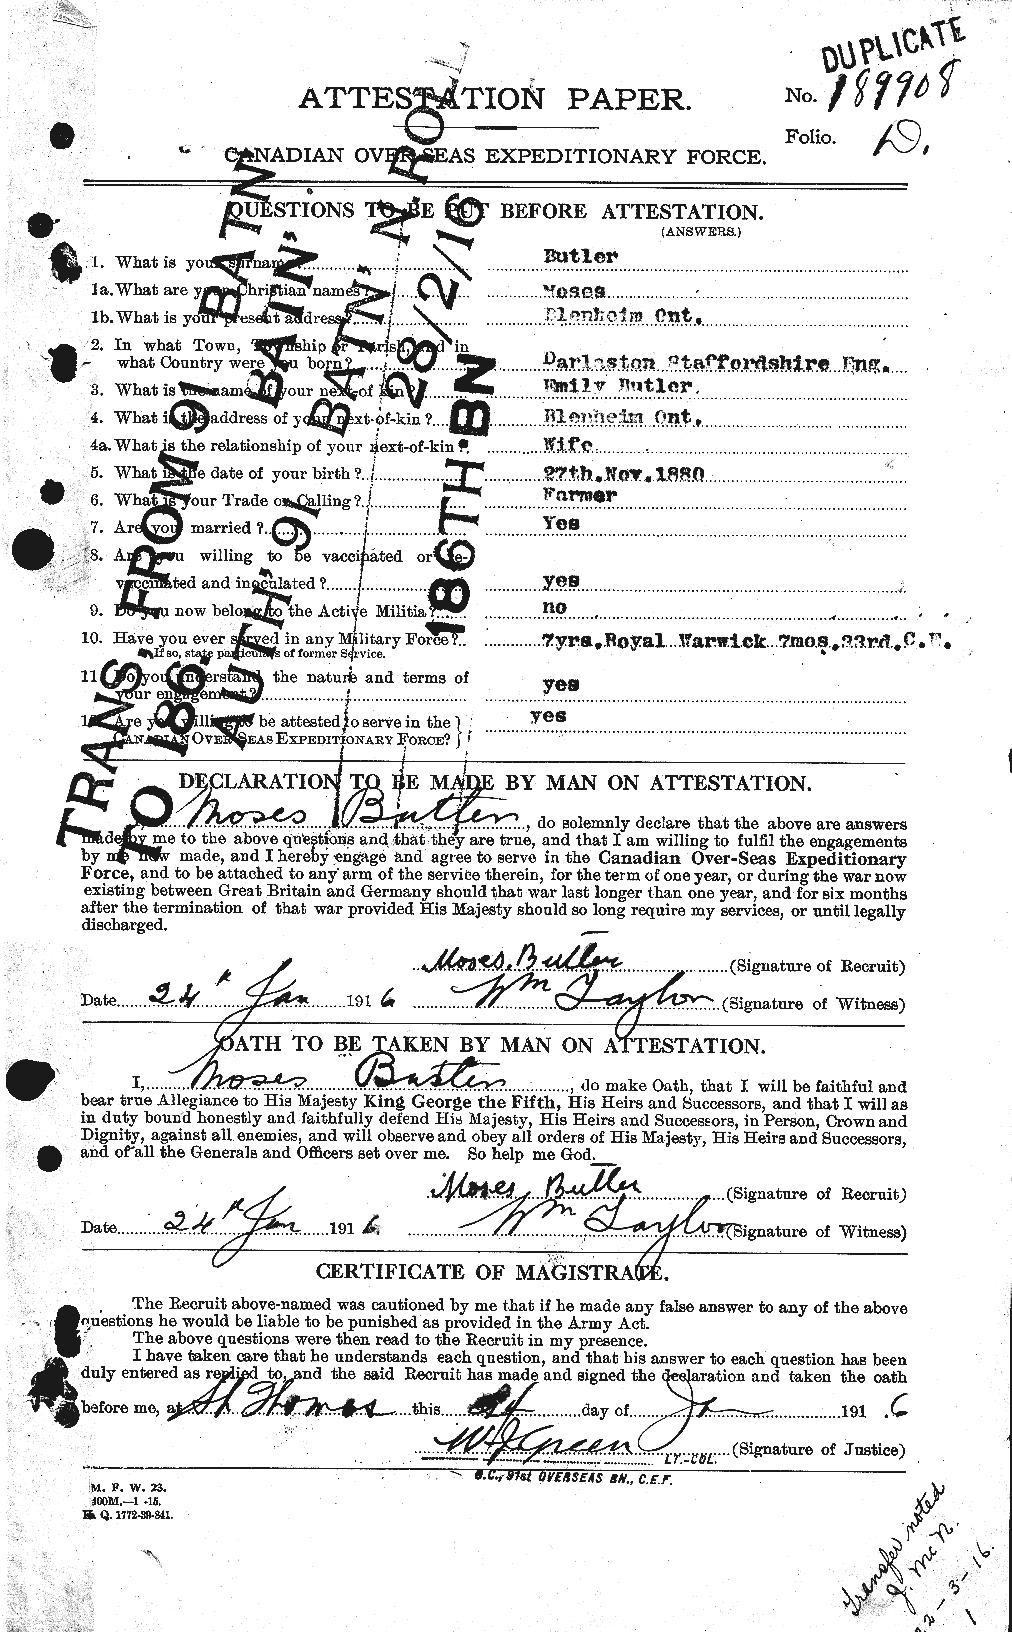 DUPLICATE
ATTESTATION PAPER.
No. 189908
Folio. D.
CANADIAN OVER-SEAS EXPEDITIONARY FORCE.
QUESTIONS TO BE PUT BEFORE ATTESTATION.
(ANSWERS.)
1. What is your surname? Butler
1a. What are your Christian names? Moses
1b. What is your present address? Blenheim Ont.
2. In what Town, Township or Parish, and in
what Country were you born? Darlaston Staffordshire Eng.
3. What is the name of your next-of-kin? Emily Butler.
4. What is the address of your next-of-kin? Blenheim Ont.
4a. What is the relationship of your next-of-kin? Wife
5. What is the date of your birth? 27th.Nov.1880
6. What is your Trade or Calling? Farmer
7. Are you married? Yes
8. Are you willing to be vaccinated or re-
vaccinated and inoculated? yes
9. Do you now belong to the Active Militia? no
10. Have you ever served in any Military Force? 7yrs.Royal Warwick 7mos.33rd.C.E.
If so, state particulars of former Service.
11. Do you understand the nature and terms of
your engagement? yes
12. Are you willing to be attested to serve in the yes
CANADIAN OVER-SEAS EXPEDITIONARY FORCE?
TRANS, FROM 91 BATN
TO 186.
AUTH, 91 BATN,
BATN, N. ROLL
28/2/16
186TH.BN
DECLARATION TO BE MADE BY MAN ON ATTESTATION.
Moses Butler, do solemnly declare that the above are answers
made by me to the above questions and that they are true, and that I am willing to fulfil the engagements
by me now made, and I hereby engage and agree to serve in the Canadian Over-Seas Expeditionary
Force, and to be attached to any arm of the service therein, for the term of one year, or during the war now
existing between Great Britain and Germany should that war last longer than one year, and for six months
after the termination of that war provided His Majesty should so long require my services, or until legally
discharged.
Moses. Butler (Signature of Recruit)
Date 24th Jan 1916 Wm Taylor (Signature of Witness)
OATH TO BE TAKEN BY MAN ON ATTESTATION.
I, Moses Butler, do make Oath, that I will be faithful and
bear true Allegiance to His Majesty King George the Fifth, His Heirs and Successors, and that I will as
in duty bound honestly and faithfully defend His Majesty, His Heirs and Successors, in Person, Crown and
Dignity, against all enemies, and will observe and obey all orders of His Majesty, His Heirs and Successors,
and of all the Generals and Officers set over me. So help me God.
Moses Butler (Signature of Recruit)
Date 24th Jan 1916 Wm Taylor (Signature of Witness)
CERTIFICATE OF MAGISTRATE.
The Recruit above-named was cautioned by me that if he made any false answer to any of the above
questions he would be liable to be punished as provided in the Army Act.
The above questions were then read to the Recruit in my presence.
I have taken care that he understands each question, and that his answer to each question has been
duly entered as replied to, and the said Recruit has made and signed the declaration and taken the oath
before me, at St Thomas this day of Ja 1916
W J Green LT.-COL. (Signature of Justice)
O.C., 91st OVERSEAS BN., C.E.F.
M. F. W. 23.
400M.—1-15.
H. Q. 1772-39-841.
Transfer noted
J. McN.
22-3-16.
1